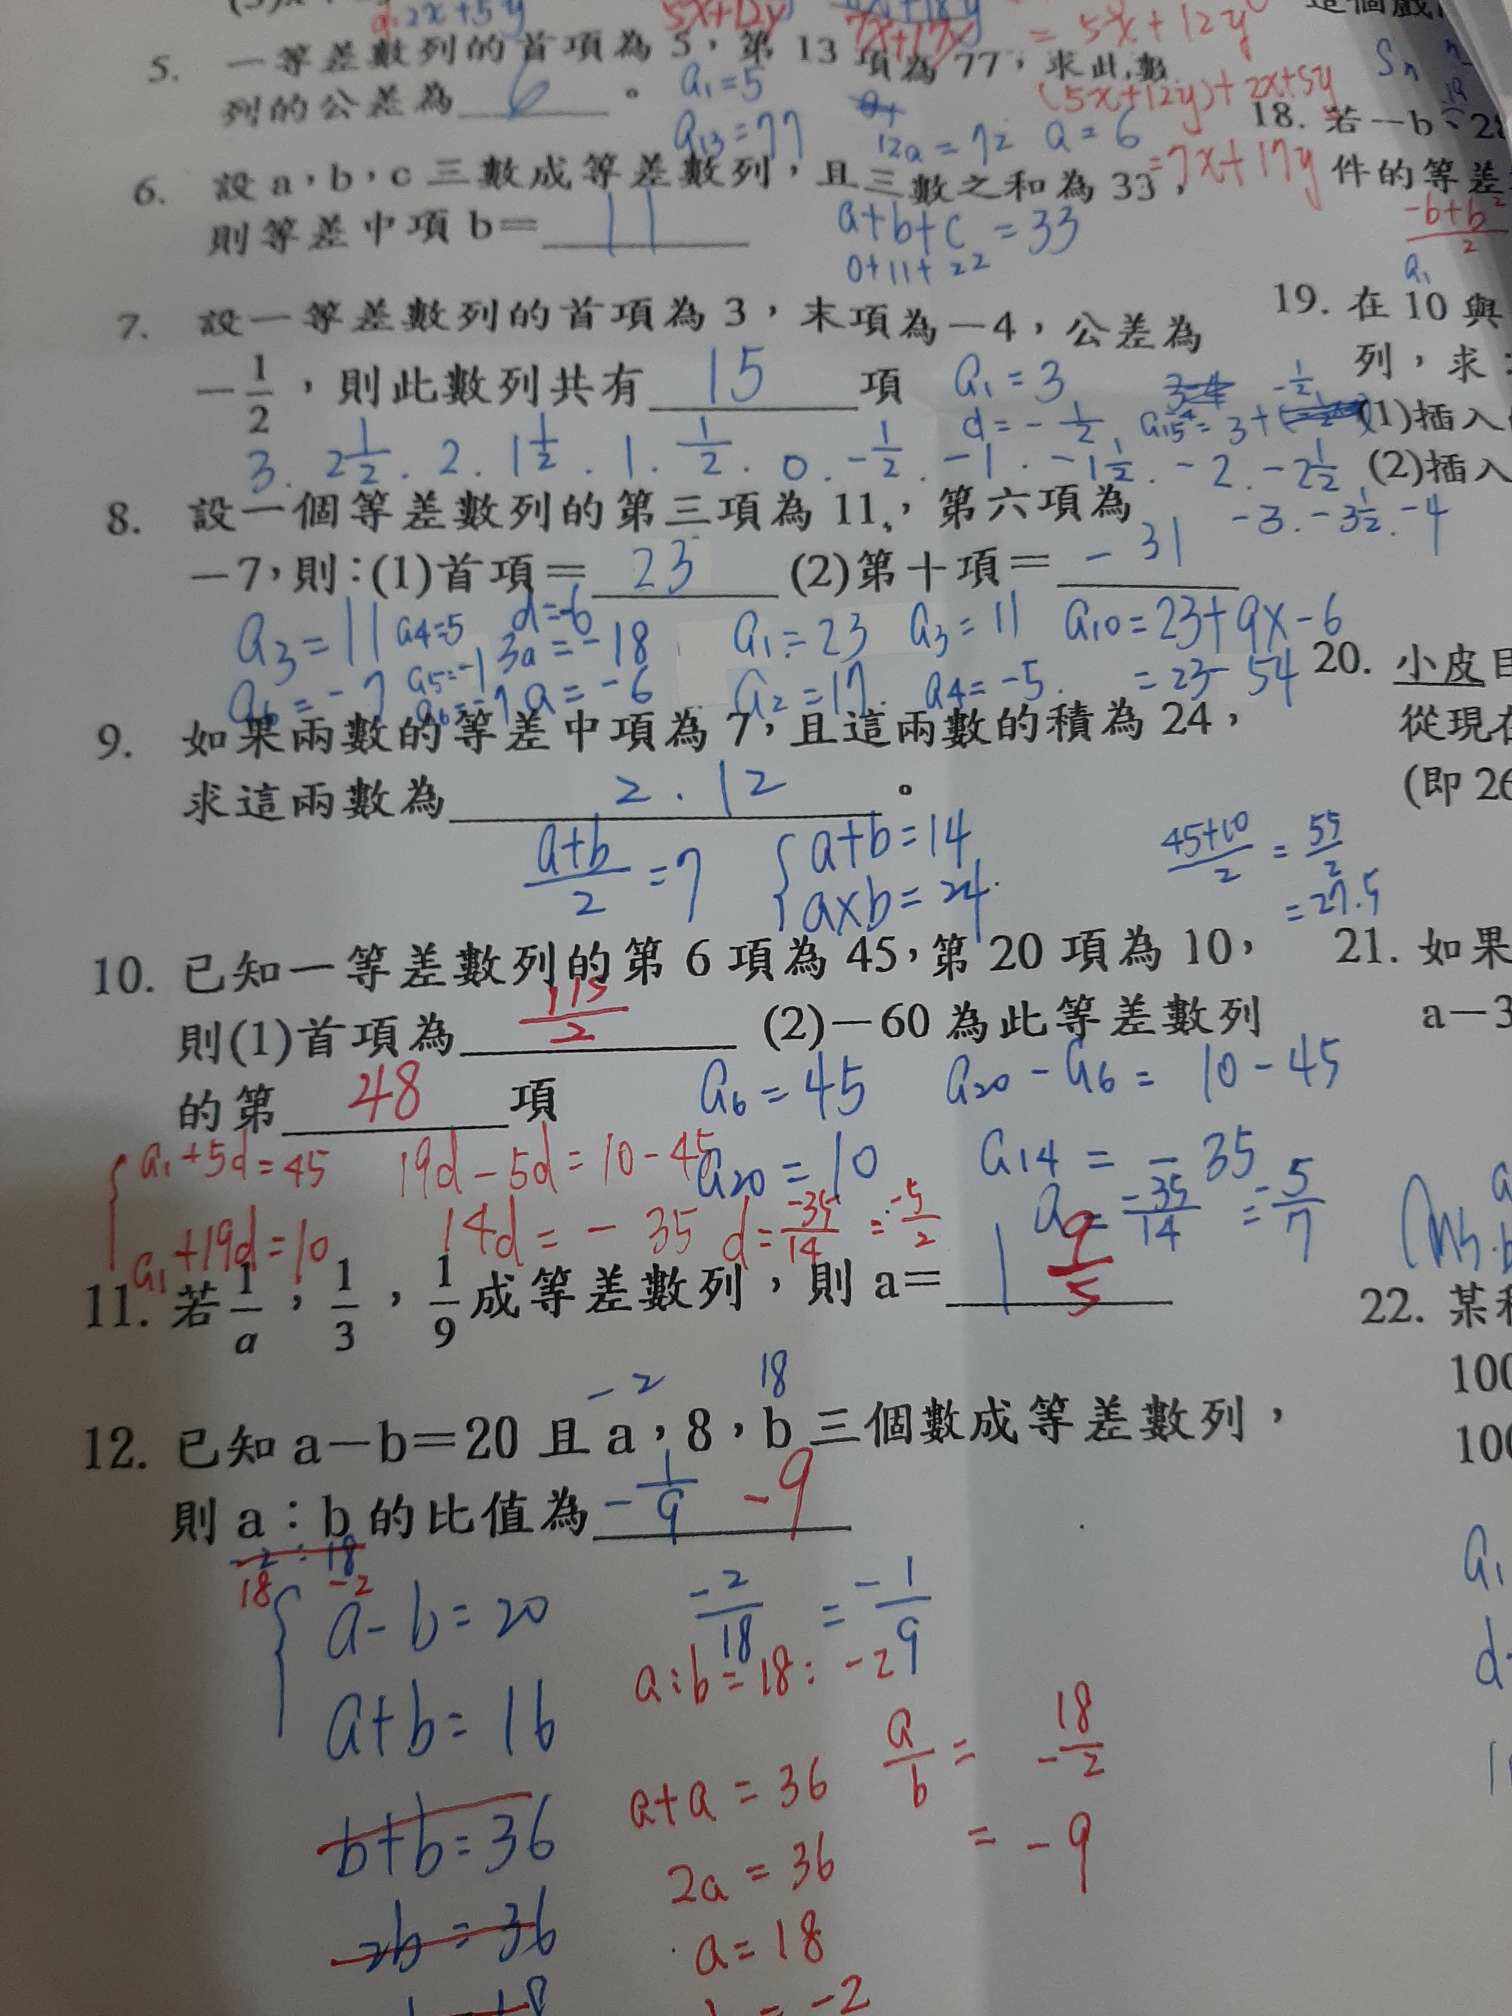 d=2x+5y 5x+12y 7x+17y = 5x+12y
5. 一等差數列的首項為 5,第 13 項為 77,求此數
列的公差為 6 。 a₁=5
a₁₃=77 12a=72 a=6
(5x+12y)+2x+5y
=7x+17y
6. 設 a,b,c 三數成等差數列,且三數之和為 33,
則等差中項 b= 11 a+b+c=33
0+11+22
7. 設一等差數列的首項為 3,末項為-4,公差為
-1/2,則此數列共有 15 項 a₁=3
d=-1/2 a₁₅=3+
3. 2 1/2. 2. 1 1/2. 1. 1/2. 0. -1/2. -1. -1 1/2. -2. -2 1/2
-3. -3 1/2. -4
8. 設一個等差數列的第三項為 11,第六項為
-7,則:(1)首項= 23 (2)第十項= -31
a₃=11 a₄=5 d=-6 a₁=23 a₃=11 a₁₀=23+9x-6
a₆=-7 a₅=-1 3a=-18 a₂=17 a₄=-5. =23-54
a₆=-7 a=-6
9. 如果兩數的等差中項為 7,且這兩數的積為 24,
求這兩數為 2.12 。
a+b/2=7 { a+b=14
a×b=24
45+10/2=55/2
=27.5
10. 已知一等差數列的第 6 項為 45,第 20 項為 10,
則(1)首項為 115/2 (2)-60 為此等差數列
的第 48 項 a₆=45 a₂₀-a₆=10-45
{ a₁+5d=45 19d-5d=10-45 a₂₀=10 a₁₄=-35
a₁+19d=10 14d=-35 d=-35/14=-5/2 a=-35/14=-5/7
11. 若1/a,1/3,1/9成等差數列,則 a= 1 9/5
-2 18
12. 已知 a-b=20 且 a,8,b 三個數成等差數列,
則 a:b 的比值為 -1/9 -9
-2:18
18 -2
{ a-b=20 -2/18=-1/9
a+b=16 a:b=18:-2
b+b=36 a+a=36 a/b=-18/2
2b=36 2a=36 =-9
a=18
=-2
Sn
18. 若-b、2
件的等差
-b+b²/2
a₁
19. 在 10 與
列,求:
(1)插入
(2)插入
20. 小皮目
從現在
(即 26
21. 如果
a-3
22. 某
100
100
a₁